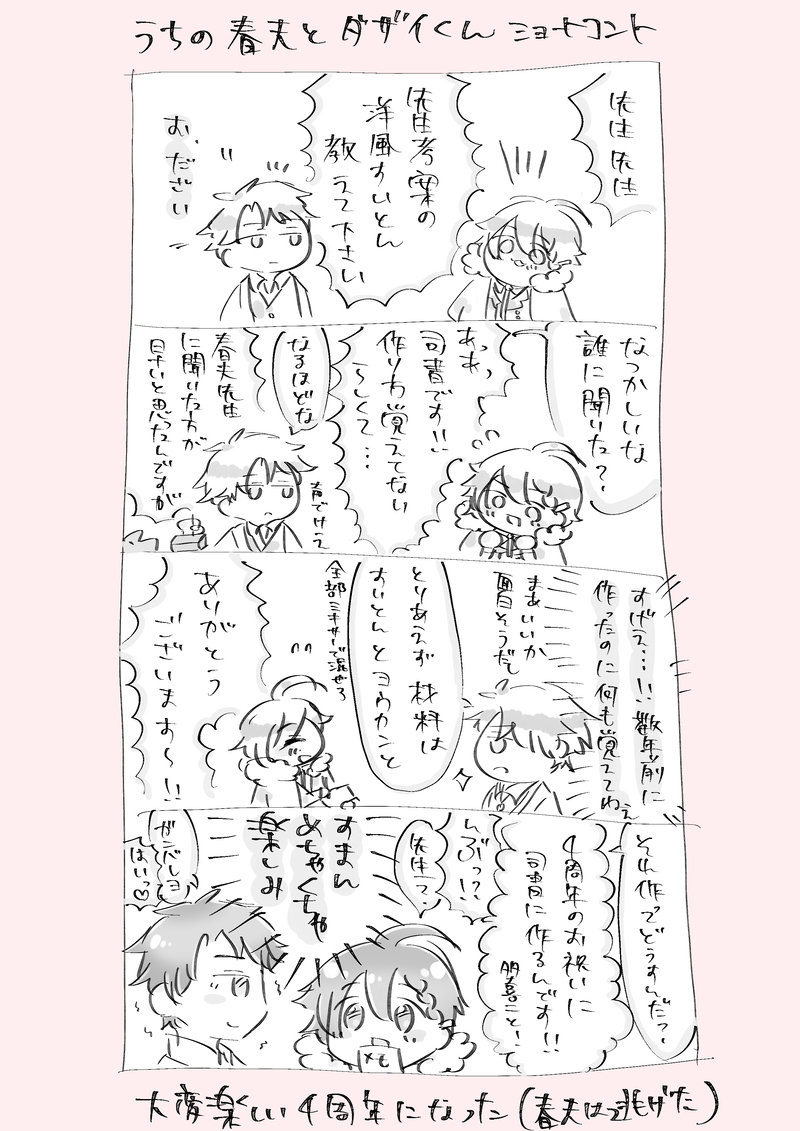 うちの春夫とダザイくんショートコント
先生先生
先生考案の
洋風すいとん
教えて下さい
お、ださい
なつかしいな
誰に聞いた?
あっあっ
司書です!!
作り方覚えてない
らしくて…
なるほどな
春夫先生
に聞いた方が
早いと思ったんですが
すげえ…!!数年前に
作ったのに何も覚えてねぇ
まあいいか
面白そうだし
とりあえず材料は
すいとんとヨウカンと
全部ミキサーで混ぜろ
ありがとう
ございます〜!!
それ作ってどうすんだ?
4周年のお祝いに
司書に作るんです!!
んぶっ?!
先生?
すまん
めちゃくちゃ
楽しみ
ガンバレヨ
はいっ♡
メモ
大変楽しい4周年になった(春夫は逃げた)